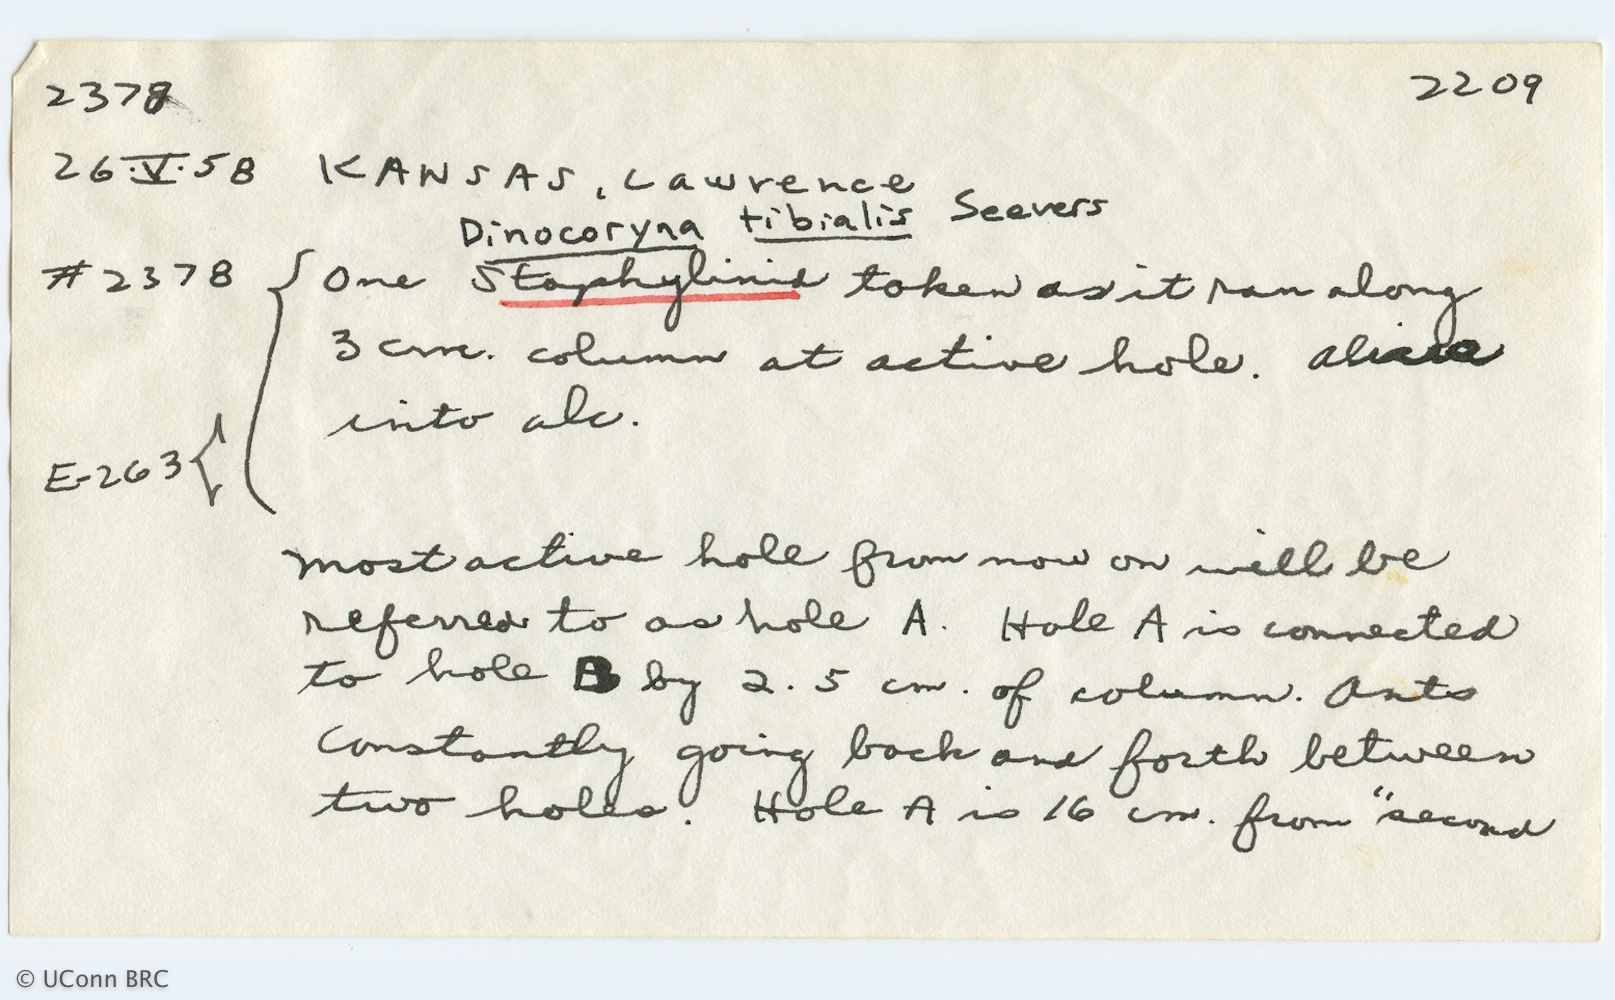 2378 2209
26·V·58 KANSAS, Lawrence
Dinocoryna tibialis Seevers
#2378 { One Staphylinid taken as it ran along
3 cm. column at active hole. Alive
into alc.
E-263 {
Most active hole from now on will be
referred to as hole A. Hole A is connected
to hole B by 2.5 cm. of column. Ants
constantly going back and forth between
two holes. Hole A is 16 cm. from "second
© UConn BRC